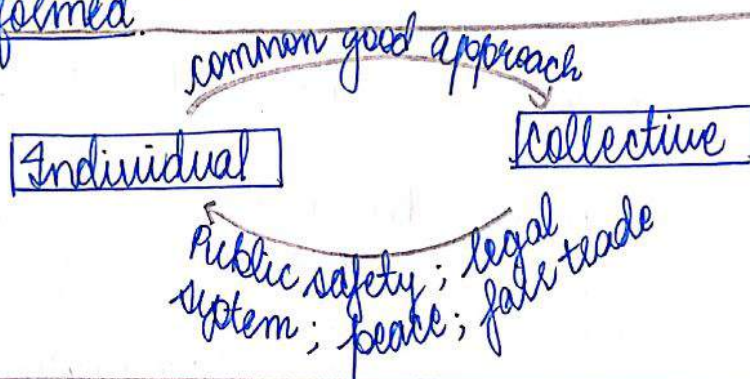 formed.
common good approach
Individual
collective
Public safety; legal
system; peace; fair trade